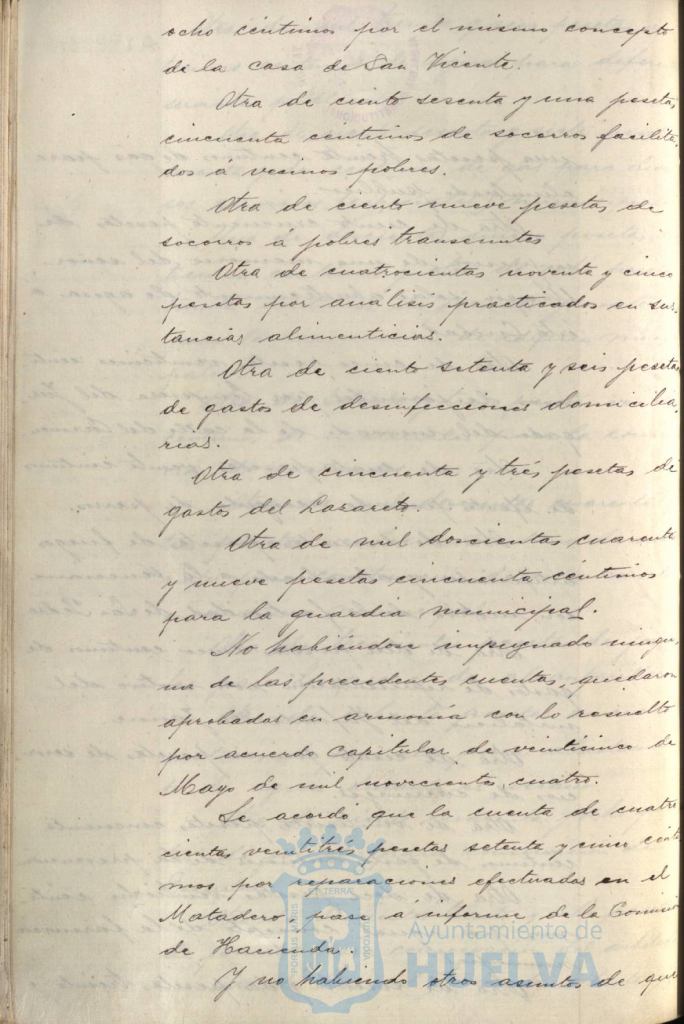 ocho céntimos por el mismo concepto
de la casa de San Vicente.
Otra de ciento sesenta y una pesetas
cincuenta centimos de socorros facilita,
dos á vecinos pobres.
Otra de ciento nueve pesetas de
socorros á pobres transeuntes
Otra de cuatrocientas noventa y cinco
pesetas por análisis practicados en sus,
tancias alimenticias.
Otra de ciento setenta y seis pesetas
de gastos de desinfecciones domicilia,
rias.
Otra de cincuenta y tres pesetas de
gastos del Lazareto.
Otra de mil doscientas cuarenta
y nueve pesetas cincuenta céntimos
para la guardia municipal.
No habiéndose impugnado ningu,
na de las precedentes cuentas, quedaron
aprobadas en armonía con lo resuelto
por acuerdo Capitular de veinticinco de
Mayo de mil novecientos cuatro.
Se acordó que la cuenta de cuatro
cientas veintitrés pesetas setenta y cinco cénti
mos por reparaciones efectuadas en el
Matadero pase á informe de la Comisión
de Hacienda.
Y no habiendo otros asuntos de que
Ayuntamiento de
HUELVA